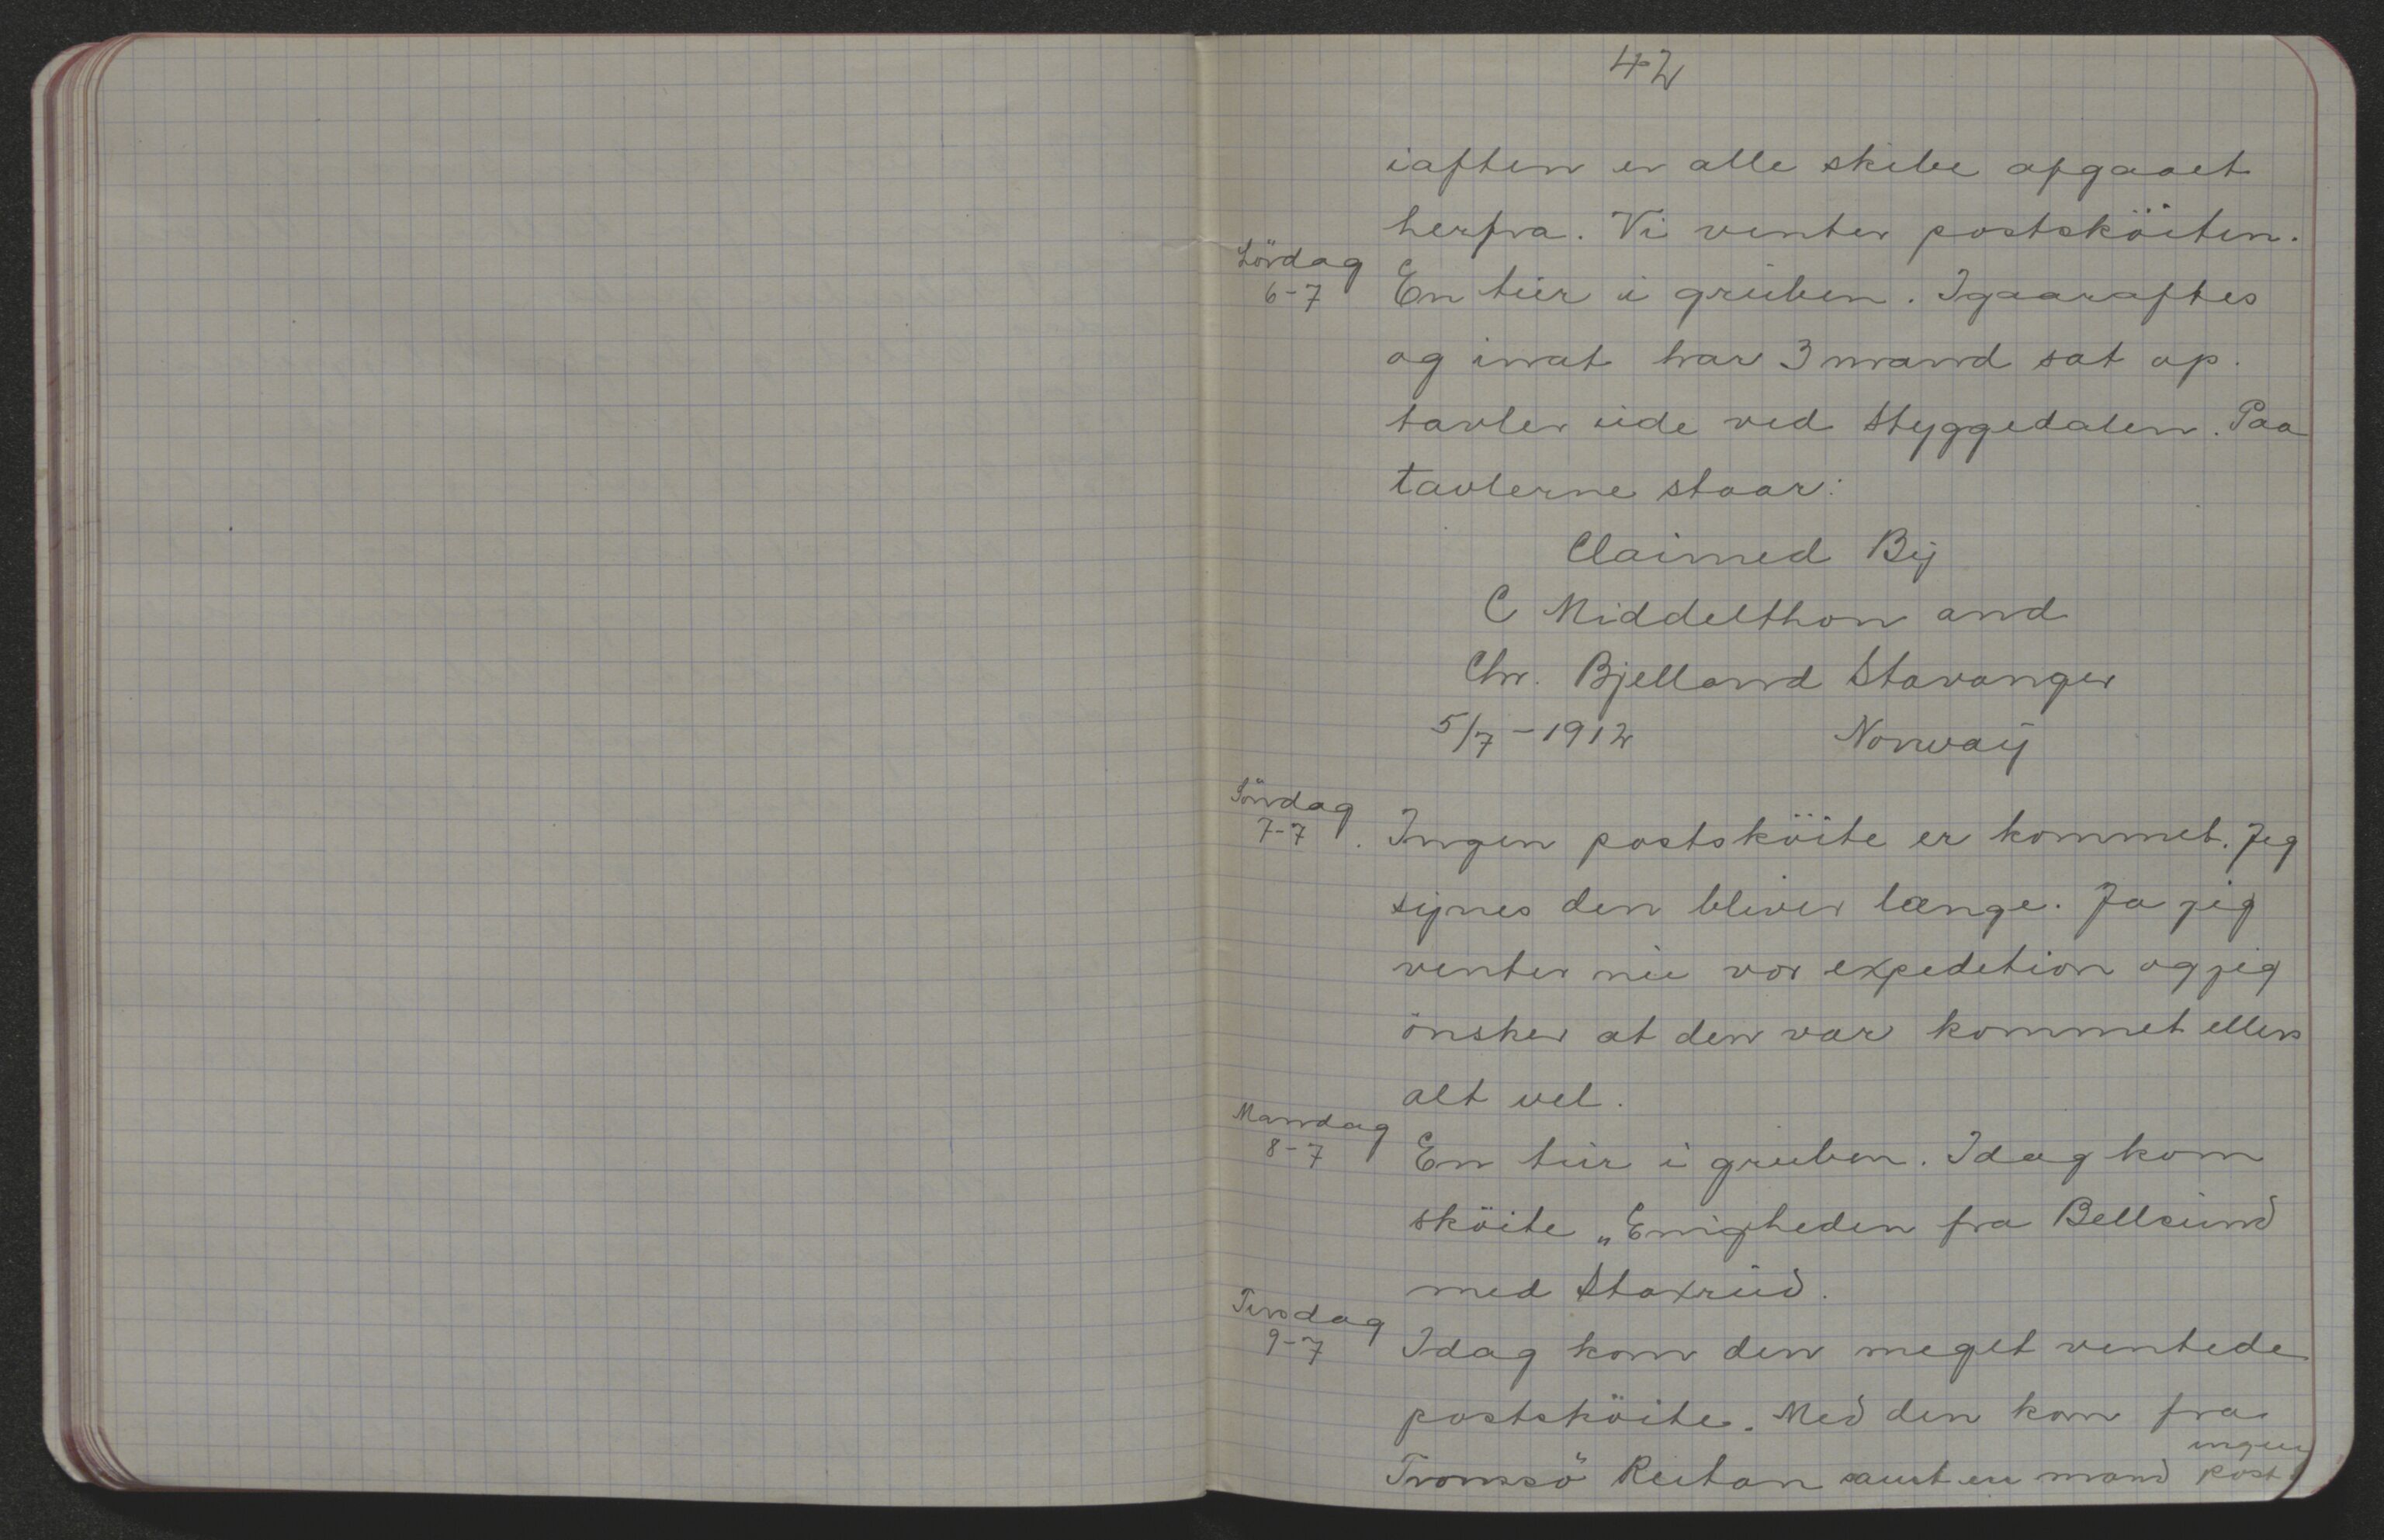 42
iaften er alle skibe afgaaet
herfra. Vi venter postsköiten.
Lördag
6-7
En tur i gruben. Igaaraftes
og inat har 3 mand sat op.
tavler ude ved Styggedalen. Paa
tavlerne staar:
Claimed By
C Middelthon and
Chr. Bjelland Stavanger
5/7-1912 Norway
Söndag
7-7.
Ingen postsköite er kommet. Jeg
synes den bliver længe. Ja jeg
venter nu vor expedetion og jeg
önsker at den var kommet ellers
alt vel.
Mandag
8-7
En tur i gruben. Idag kom
sköite „Enigheden fra Bellsund
med Staxrud.
Tirsdag
9-7
Idag kom den meget ventede
postsköite. Med den kom fra
Tromsö Reitan samt en mand ingen
post.